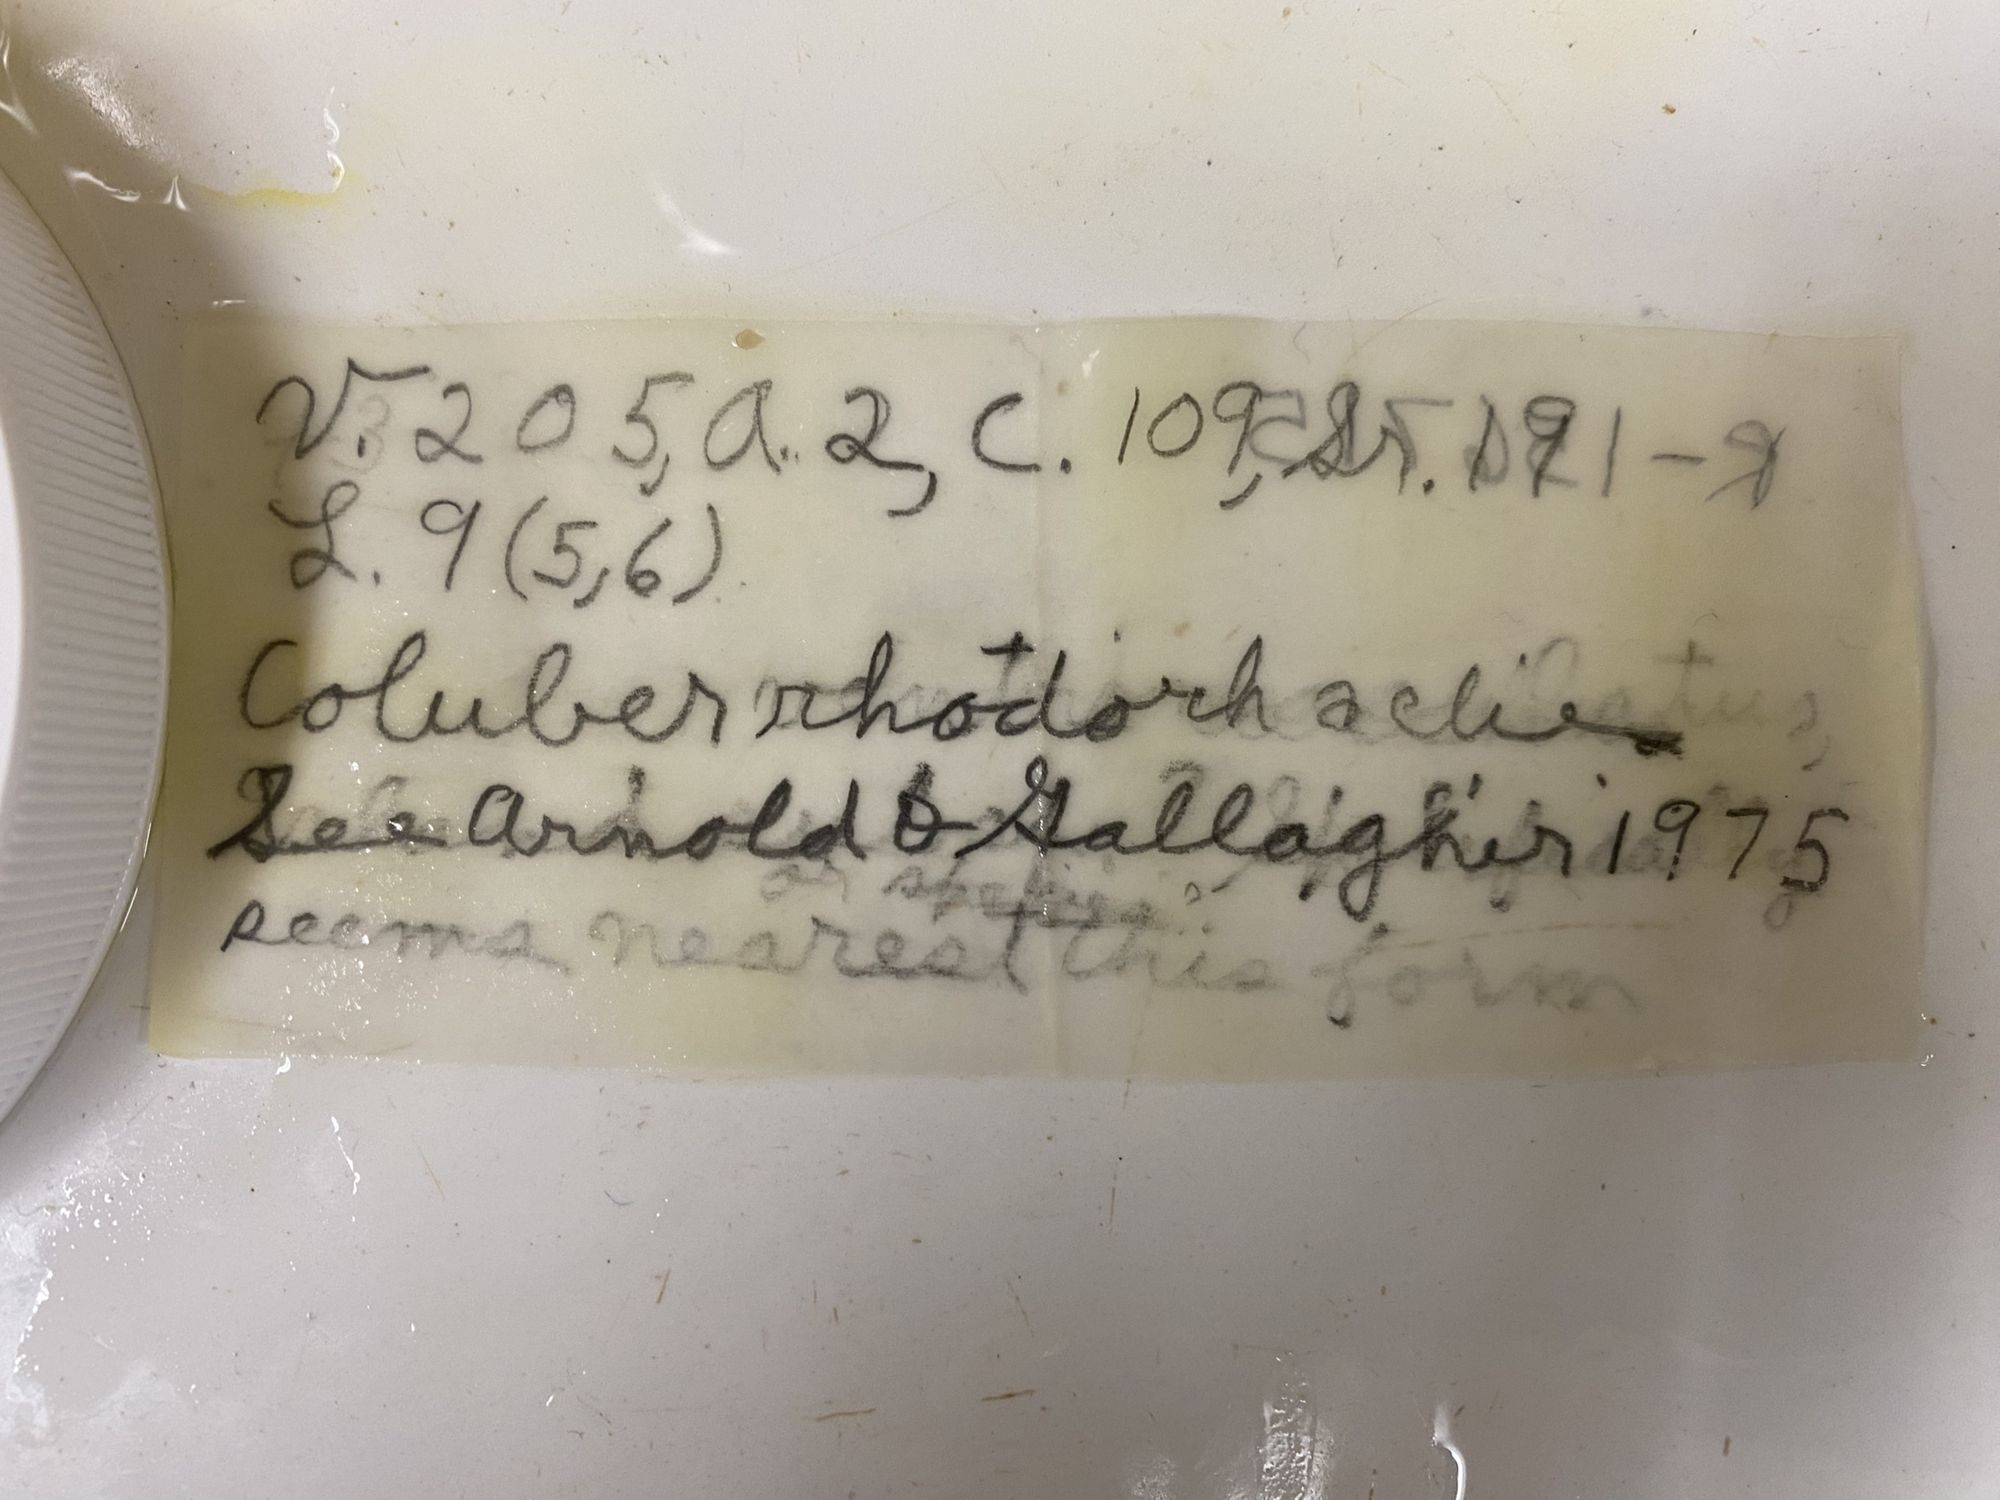 V. 205, A. 2, C. 109,
L. 9 (5,6)
Coluber rhodorhachis
See Arnold & Gallagher 1975
seems nearest this form